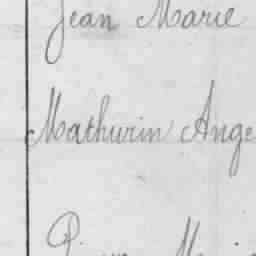 Jean Marie
Mathurin Ange